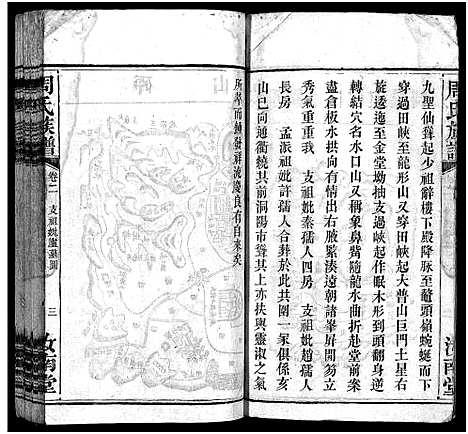 周氏族譜
九聖仙聳起少祖辭樓下殿降脉至鼇頭嶺蜿蜒而下
穿過田峽至龍形山又穿田峽起大普山巨門土星右
旋透迤至金堂坳抽支過峽起作眠木形到頭翻身逆
轉結穴名水口山又稱象鼻嘴隨龍水曲折赴堂前羣
盡倉板水拱向有情右腋緊湊遠朝諸峯屏開一一獻
秀氣重重我 支祖妣秦孺人四男 支祖妣趙孺人
長房 孟派祖妣許孺人合葬於此共圍一冢俱係亥
山巳向通衢繞其前洞陽市聳其上亦扶輿靈淑之气
所萃而鍾發祥流慶良有自来矣
周氏族譜
卷二
支祖姚廬墓圖
三
汝南堂
汝南堂